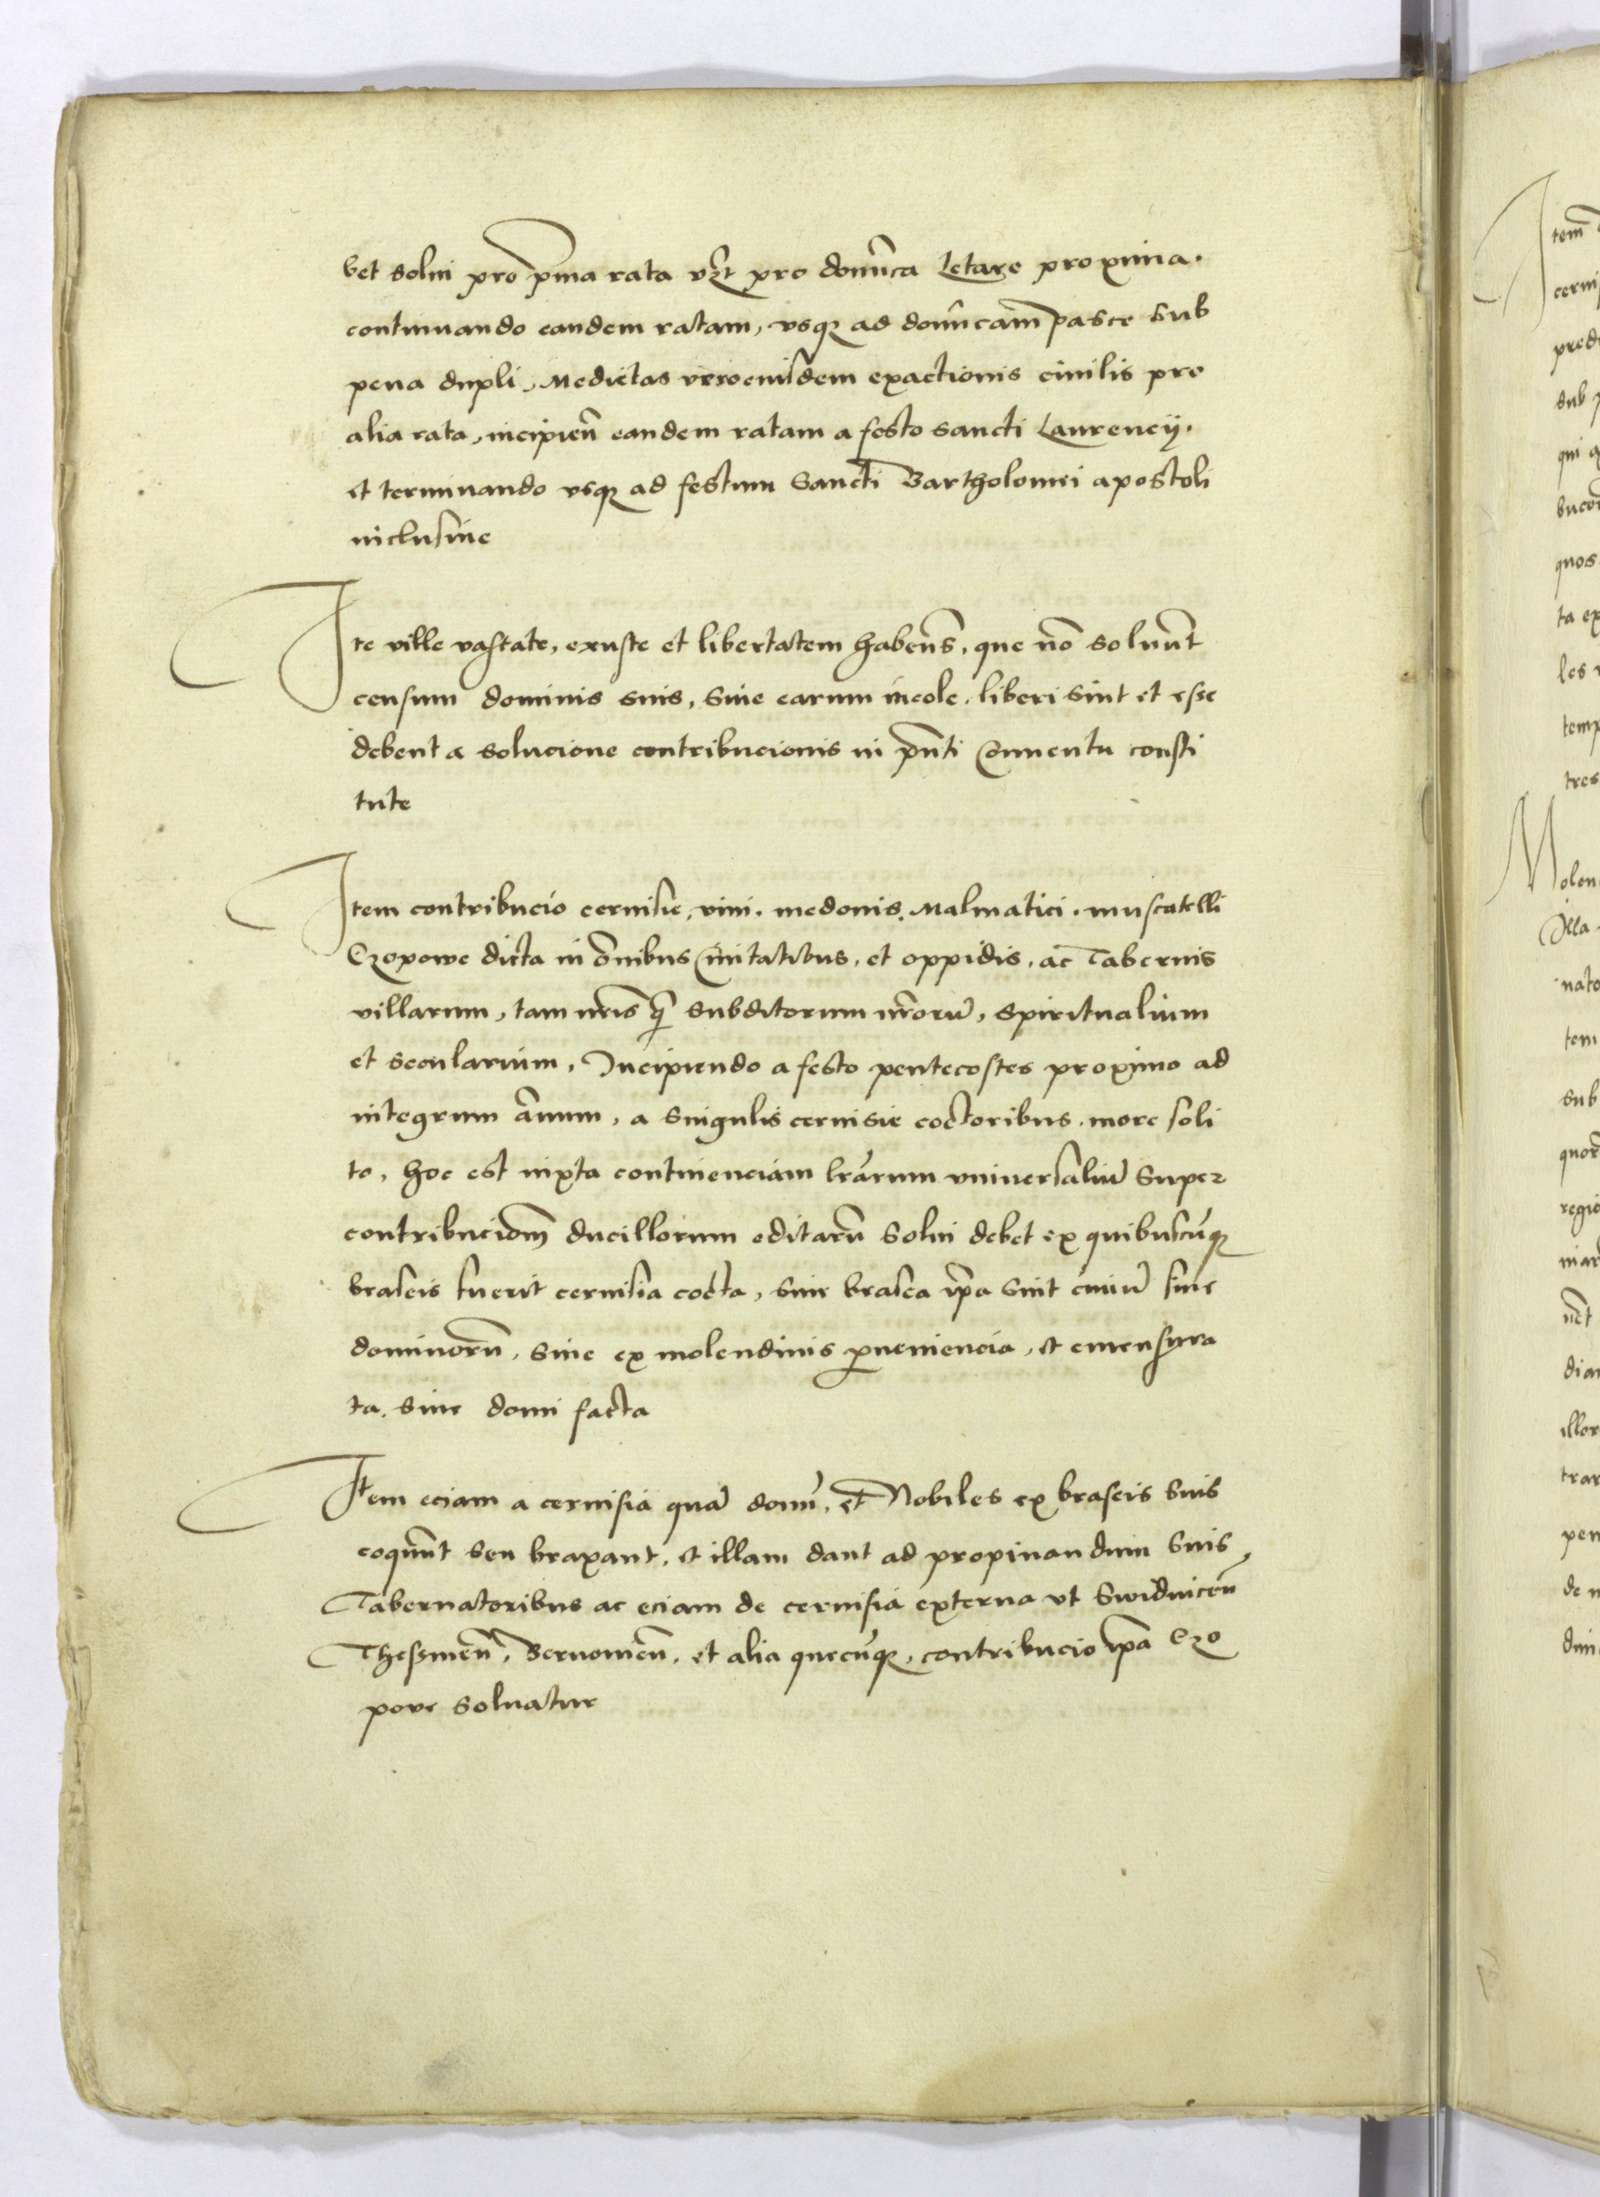 bet solui pro p̃ma rata vꝫt pro domĩca Letare proxima.
continuando eandem ratam, vsqꝫ ad domĩcam pasce Sub
pena dupli, Medietas vero eiusdem exactionis ciuilis pro
alia rata, incipieñ eandem ratam a festo sancti Laurencij.
et terminando vsqꝫ ad festum Sancti Bartholomei apostoli
inclusiue
Ite ville vastate, exuste et libertatem habeñs, que nõ soluũt
censum dominis suis, Siue earum incole. liberi sint et esse
debent a solucione contribucionis in p̃nti Conuentu consti
tute
Item contribucio ceruisie, vini. medonis. Malmatici. muscatelli
Czopowe dicta in õnibus Ciuitatibus, et oppidis. ac Tabernis
villarum, tam nr̃is q̃ subditorum nr̃orũ, spiritualium
et secularium, Incipiendo a festo pentecostes proximo ad
integrum ãnum, a Singulis ceruisie coctoribus. more soli
to, hoc est iuxta continenciam lr̃arum vniuersaliũ Super
contribucioñ ducillorum editarũ Solui debet ex quibuscũqꝫ
braseis fuerit ceruisia cocta, siue brasea ip̃a sint ciuiũ siue
dominorũ, Siue ex molendinis ꝓueniencia, et emensura
ta. Siue domi facta
Item eciam a ceruisia quã domĩ, et Nobiles ex braseis Suis
coquũt seu braxant, et illam dant ad propinandum Suis
Tabernatoribus ac eciam de ceruisia externa vt Swidniceñ
Thessmeñ, Bernomeñ. et alia quecũqꝫ, contribucio ip̃a Czo
powe soluatur
tem
cerui
pred
sub
qui
bucoñ
quos
ta ex
les
temp
tres
Molen
Illa
nato
tem
sub
quorũ
regio
diar
illor
trar
pen
de